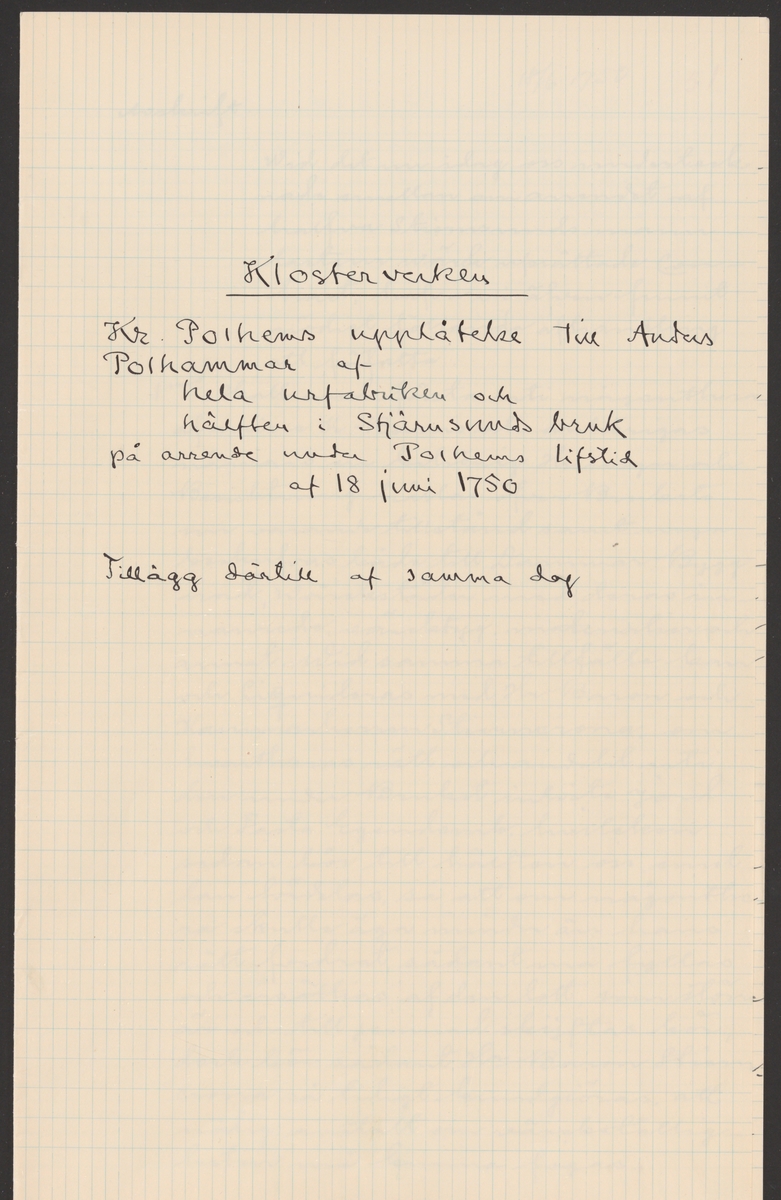 Klosterverken
Kr. Polhems upplåtelse till Anders
Polhammar af
hela urfabriken och
hälften i Stjärnsunds bruk
på arrende under Polhems lifstid
af 18 juni 1750
Tillägg därtill af samma dag